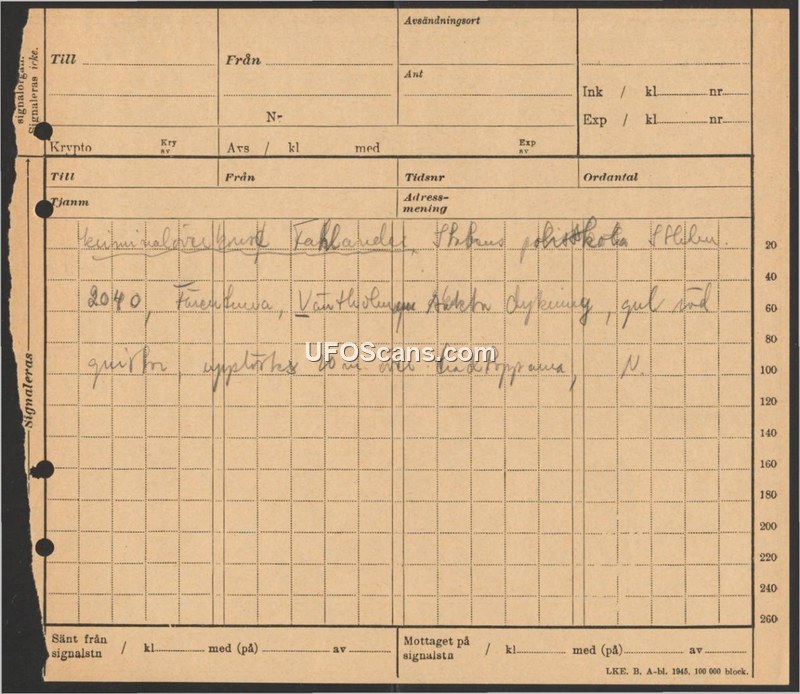 Signaleras icke.
signalorgan.
Till
Från
Avsändningsort
Ant
N-
Ink / kl nr
Exp / kl nr
Krypto
Kry av
Avs / kl med
Exp av
Till
Från
Tidsnr
Ordantal
Tjanm
Adress-
mening
Statens polisskola Sthlm.
20
40
2040, Färentuna, dykning, gul röd
60
80
upplöstes 10 m. över trädtopparna, N.
100
UFOScans.com
120
140
160
180
200
220
240
260
Signaleras
Sänt från
signalstn / kl med (på) av
Mottaget på
signalstn / kl med (på) av
LKE. B, A-bl. 1945, 100 000 block.